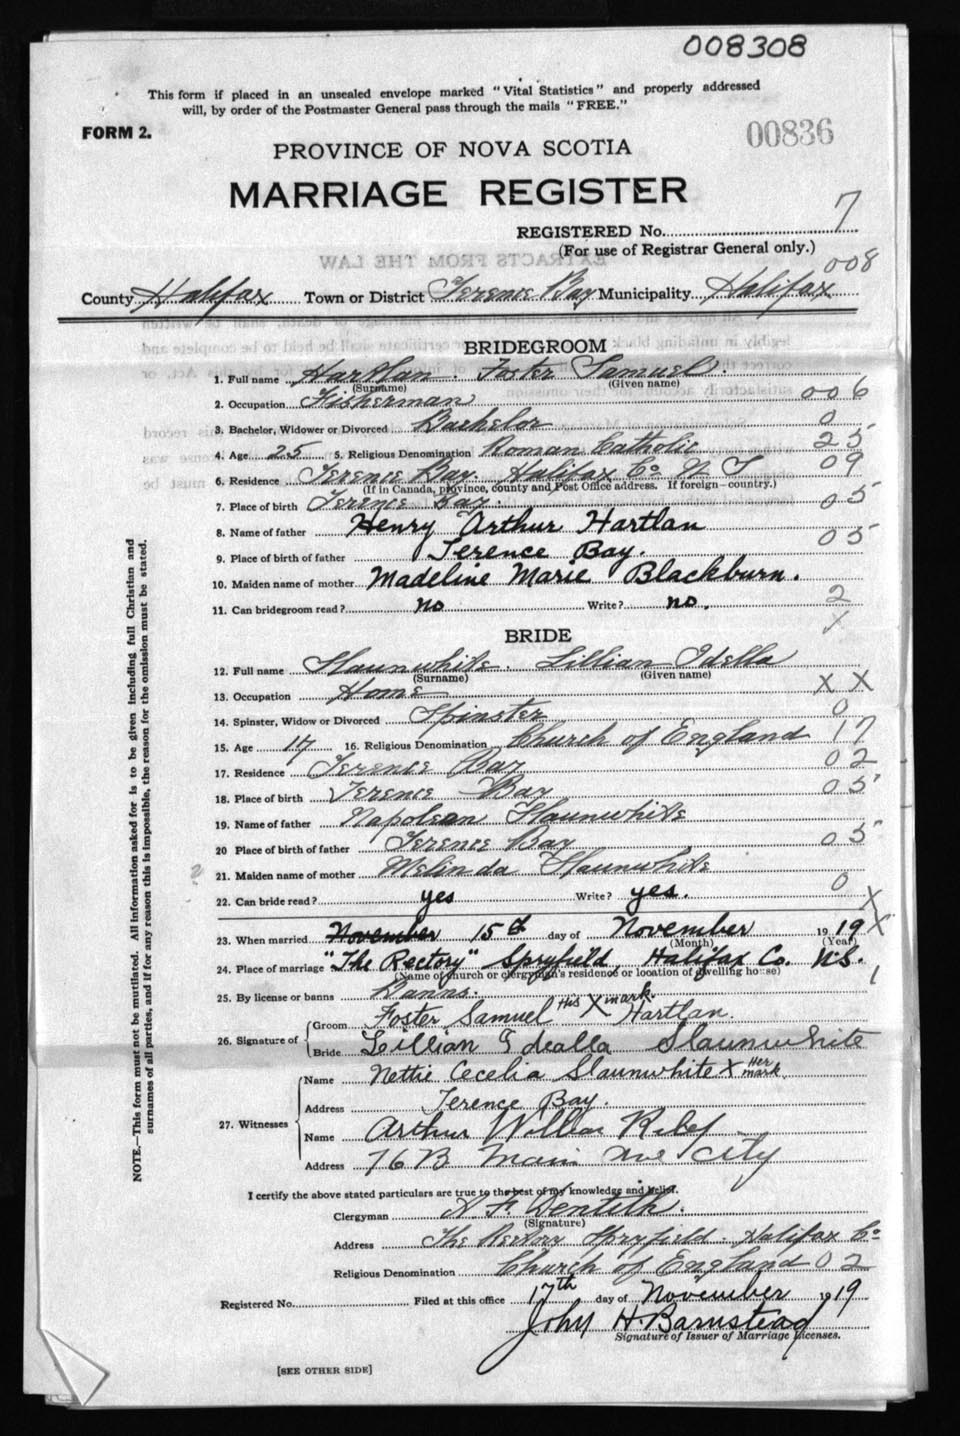 008308
This form if placed in an unsealed envelope marked "Vital Statistics" and properly addressed
will, by order of the Postmaster General pass through the mails "FREE."
FORM 2.
00836
PROVINCE OF NOVA SCOTIA
MARRIAGE REGISTER
REGISTERED No. 7
(For use of Registrar General only.)
EXTRACTS FROM THE LAW
008
County Halifax Town or District Terence Bay Municipality Halifax
BRIDEGROOM
1. Full name Hartlan. Foster Samuel.
(Surname) (Given name)
2. Occupation Fisherman 006
3. Bachelor, Widower or Divorced Bachelor 0
4. Age 25 5. Religious Denomination Roman Catholic 25
6. Residence Terence Bay Halifax Co N S 09
(If in Canada, province, county and Post Office address. If foreign—country.)
7. Place of birth Terence Bay. 05
8. Name of father Henry Arthur Hartlan
9. Place of birth of father Terence Bay. 05
10. Maiden name of mother Madeline Marie Blackburn.
11. Can bridegroom read? no Write? no. 2
X
BRIDE
12. Full name Slaunwhite. Lillian Idella
(Surname) (Given name)
13. Occupation Home X X
14. Spinster, Widow or Divorced Spinster 0
15. Age 17 16. Religious Denomination Church of England 17
17. Residence Terence Bay 02
18. Place of birth Terence Bay 05
19. Name of father Napolean Slaunwhite
20 Place of birth of father Terence Bay 05
21. Maiden name of mother Melinda Slaunwhite
?
22. Can bride read? yes Write? yes. 0
X
23. When married November 15th day of November 1919 X
(Month) (Year)
24. Place of marriage "The Rectory" Spryfield, Halifax Co. N.S.
(Name of church or clergyman's residence or location of dwelling house)
25. By license or banns Banns. 1
26. Signature of Groom Foster Samuel His X mark. Hartlan.
Bride Lillian Idealla Slaunwhite
27. Witnesses
Name Nettie Cecelia Slaunwhite X Her mark
Address Terence Bay.
Name Arthur
Address 76B Main Ave City
I certify the above stated particulars are true to the best of my knowledge and belief.
Clergyman A F Dentith.
(Signature)
Address The Rectory Spryfield. Halifax Co
Religious Denomination Church of England 02
Registered No. Filed at this office 17th day of November 1919
John H. Barnstead
Signature of Issuer of Marriage Licenses.
[SEE OTHER SIDE]
NOTE.—This form must not be mutilated. All information asked for is to be given including full Christian and
surnames of all parties, and if for any reason this is impossible, the reason for the omission must be stated.